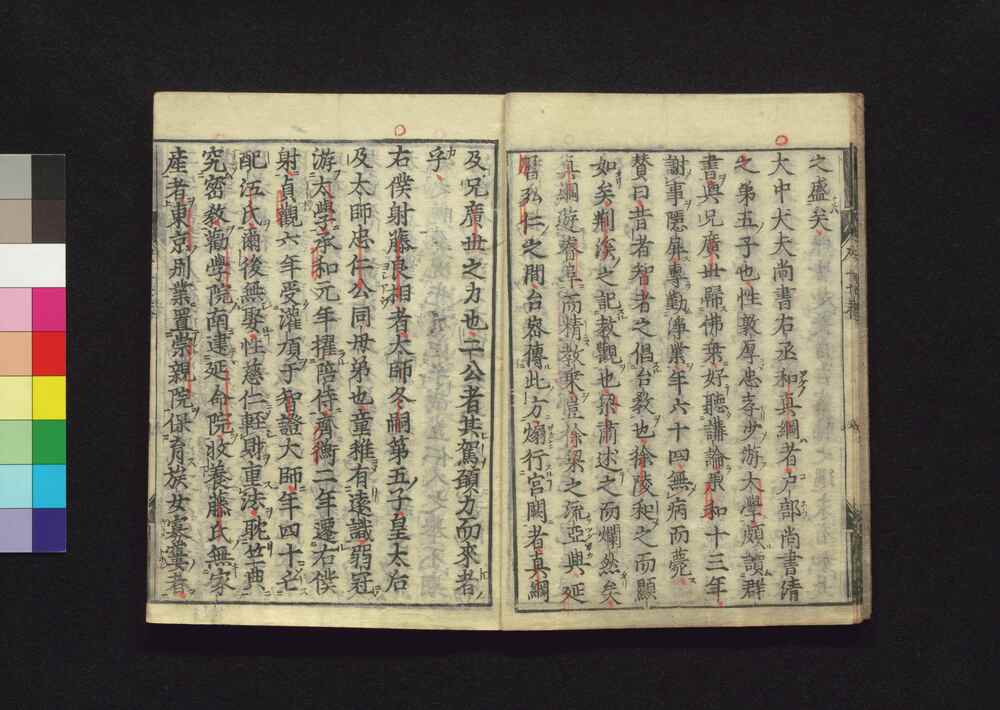 之盛矣
大中大夫尚書右丞和真綱者戶部尚書清
之第五子也性敦厚忠孝少游大學頗讀群
書與兄廣世歸佛乘好聽講論承和十三年
謝事隱扉專勤淨業年六十四無病而薨
贊曰昔者智者之倡台教也徐陵和之而顯
如矣荊溪之記教觀也梁肅述之而爛然矣
真綱遊睿阜而精教乘豈徐梁之流亞與延
曆弘仁之間台密傳此方煽行宮闕者真綱
及兄廣世之力也二公者其駕願力而來者
乎
右僕射藤良相者太師冬嗣第五子皇太后
及太師忠仁公同母弟也童稚有遠識弱冠
游太學承和元年擢陪侍齊衡二年遷右僕
射貞觀六年受灌頂于智證大師年四十亡
配江氏爾後無娶性慈仁輕財重法耽竺典
究密教勸學院南建延命院收養藤氏無家
產者東京別業置崇親院保育族女寡妻者